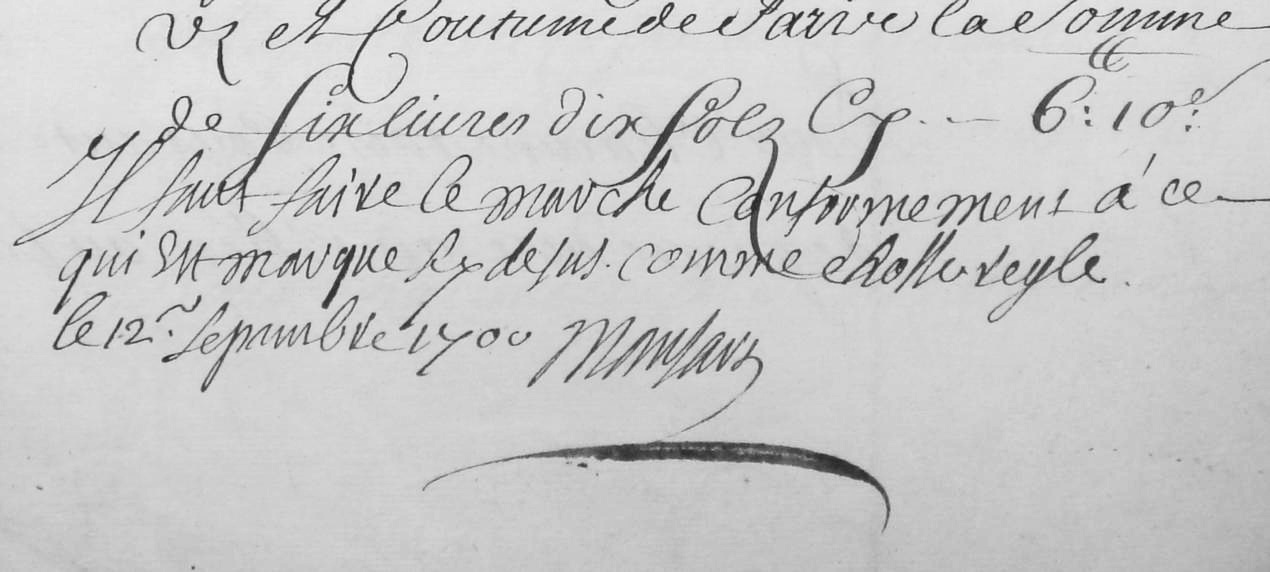 Vz et Coutume de Paris la Somme
de Six liures dix Solz Cy .. — 6:tt 10s:
Il faut faire le marche Conformement á ce
qui Est marque Sy desus. comme chosse regle.
le 12e. Septembre 1700 Mansart